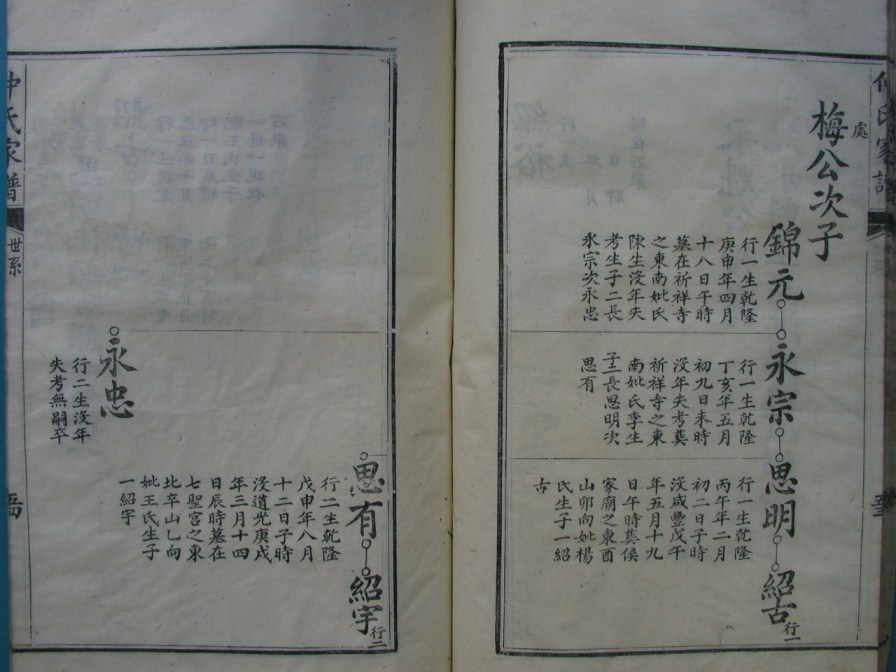 處
梅公次子
錦元
行一生乾隆
庚申年四月
十八日午時
墓在祈祥寺
之東南妣氏
陳生沒年失
考生子二長
永宗次永忠
永宗
行一生乾隆
丁亥年五月
初九日未時
沒年失考葬
祈祥寺之東
南妣氏李生
子二長思明次
思有
思明
行一生乾隆
丙午年二月
初二日子時
沒咸豐戊午
年五月十九
日午時葬侯
家廟之東酉
山卯向妣楊
氏生子一紹
古
紹古
行一
思有
行二生乾隆
戊申年八月
十二日子時
沒道光庚戌
年三月十四
日辰時墓在
七聖宮之東
北辛山乚向
妣王氏生子
一紹宇
紹宇
行二
永忠
行二生沒年
失考無嗣卒
仲氏家譜
世系